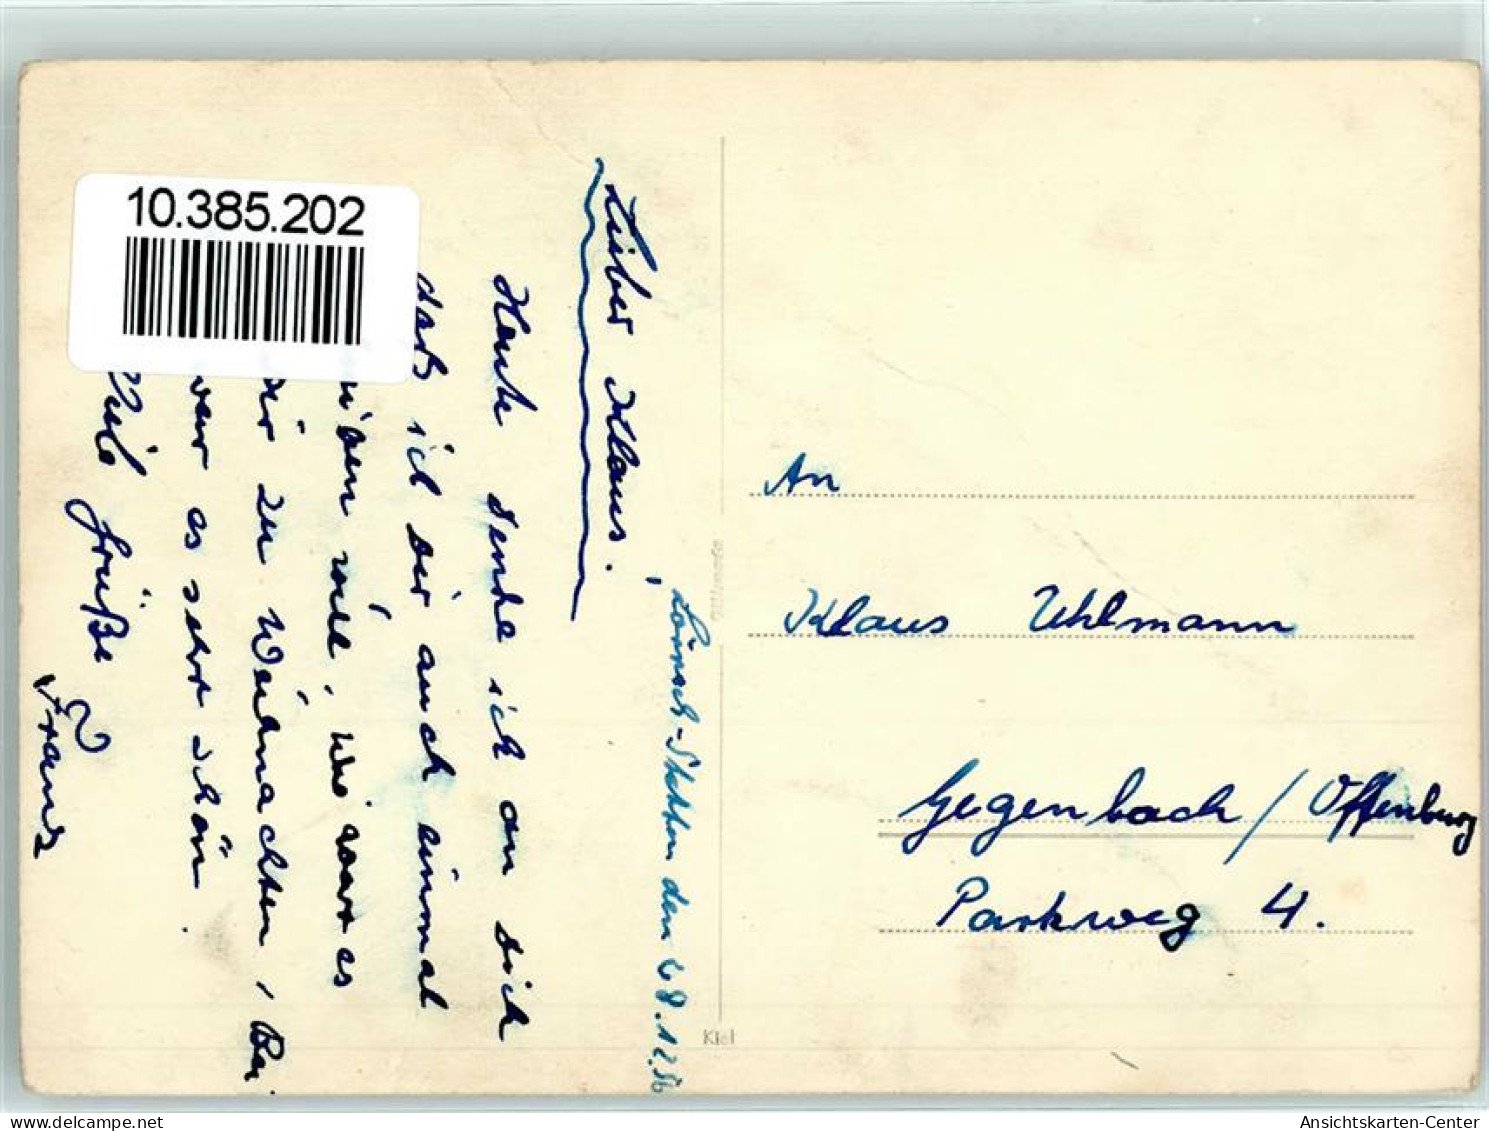 10.385.202
Lörrach-Stetten den 28.12.56
Lieber Klaus.
Heute denke ich an dich
daß ich dir auch einmal
will, wie war es
dir zu Weihnachten, Bei
war es sehr schön.
Viele Grüße
Franz
An
Klaus Uhlmann
Gegenbach / Offenburg
Parkweg 4.
Kiel
delcampe.net
Ansichtskarten-Center